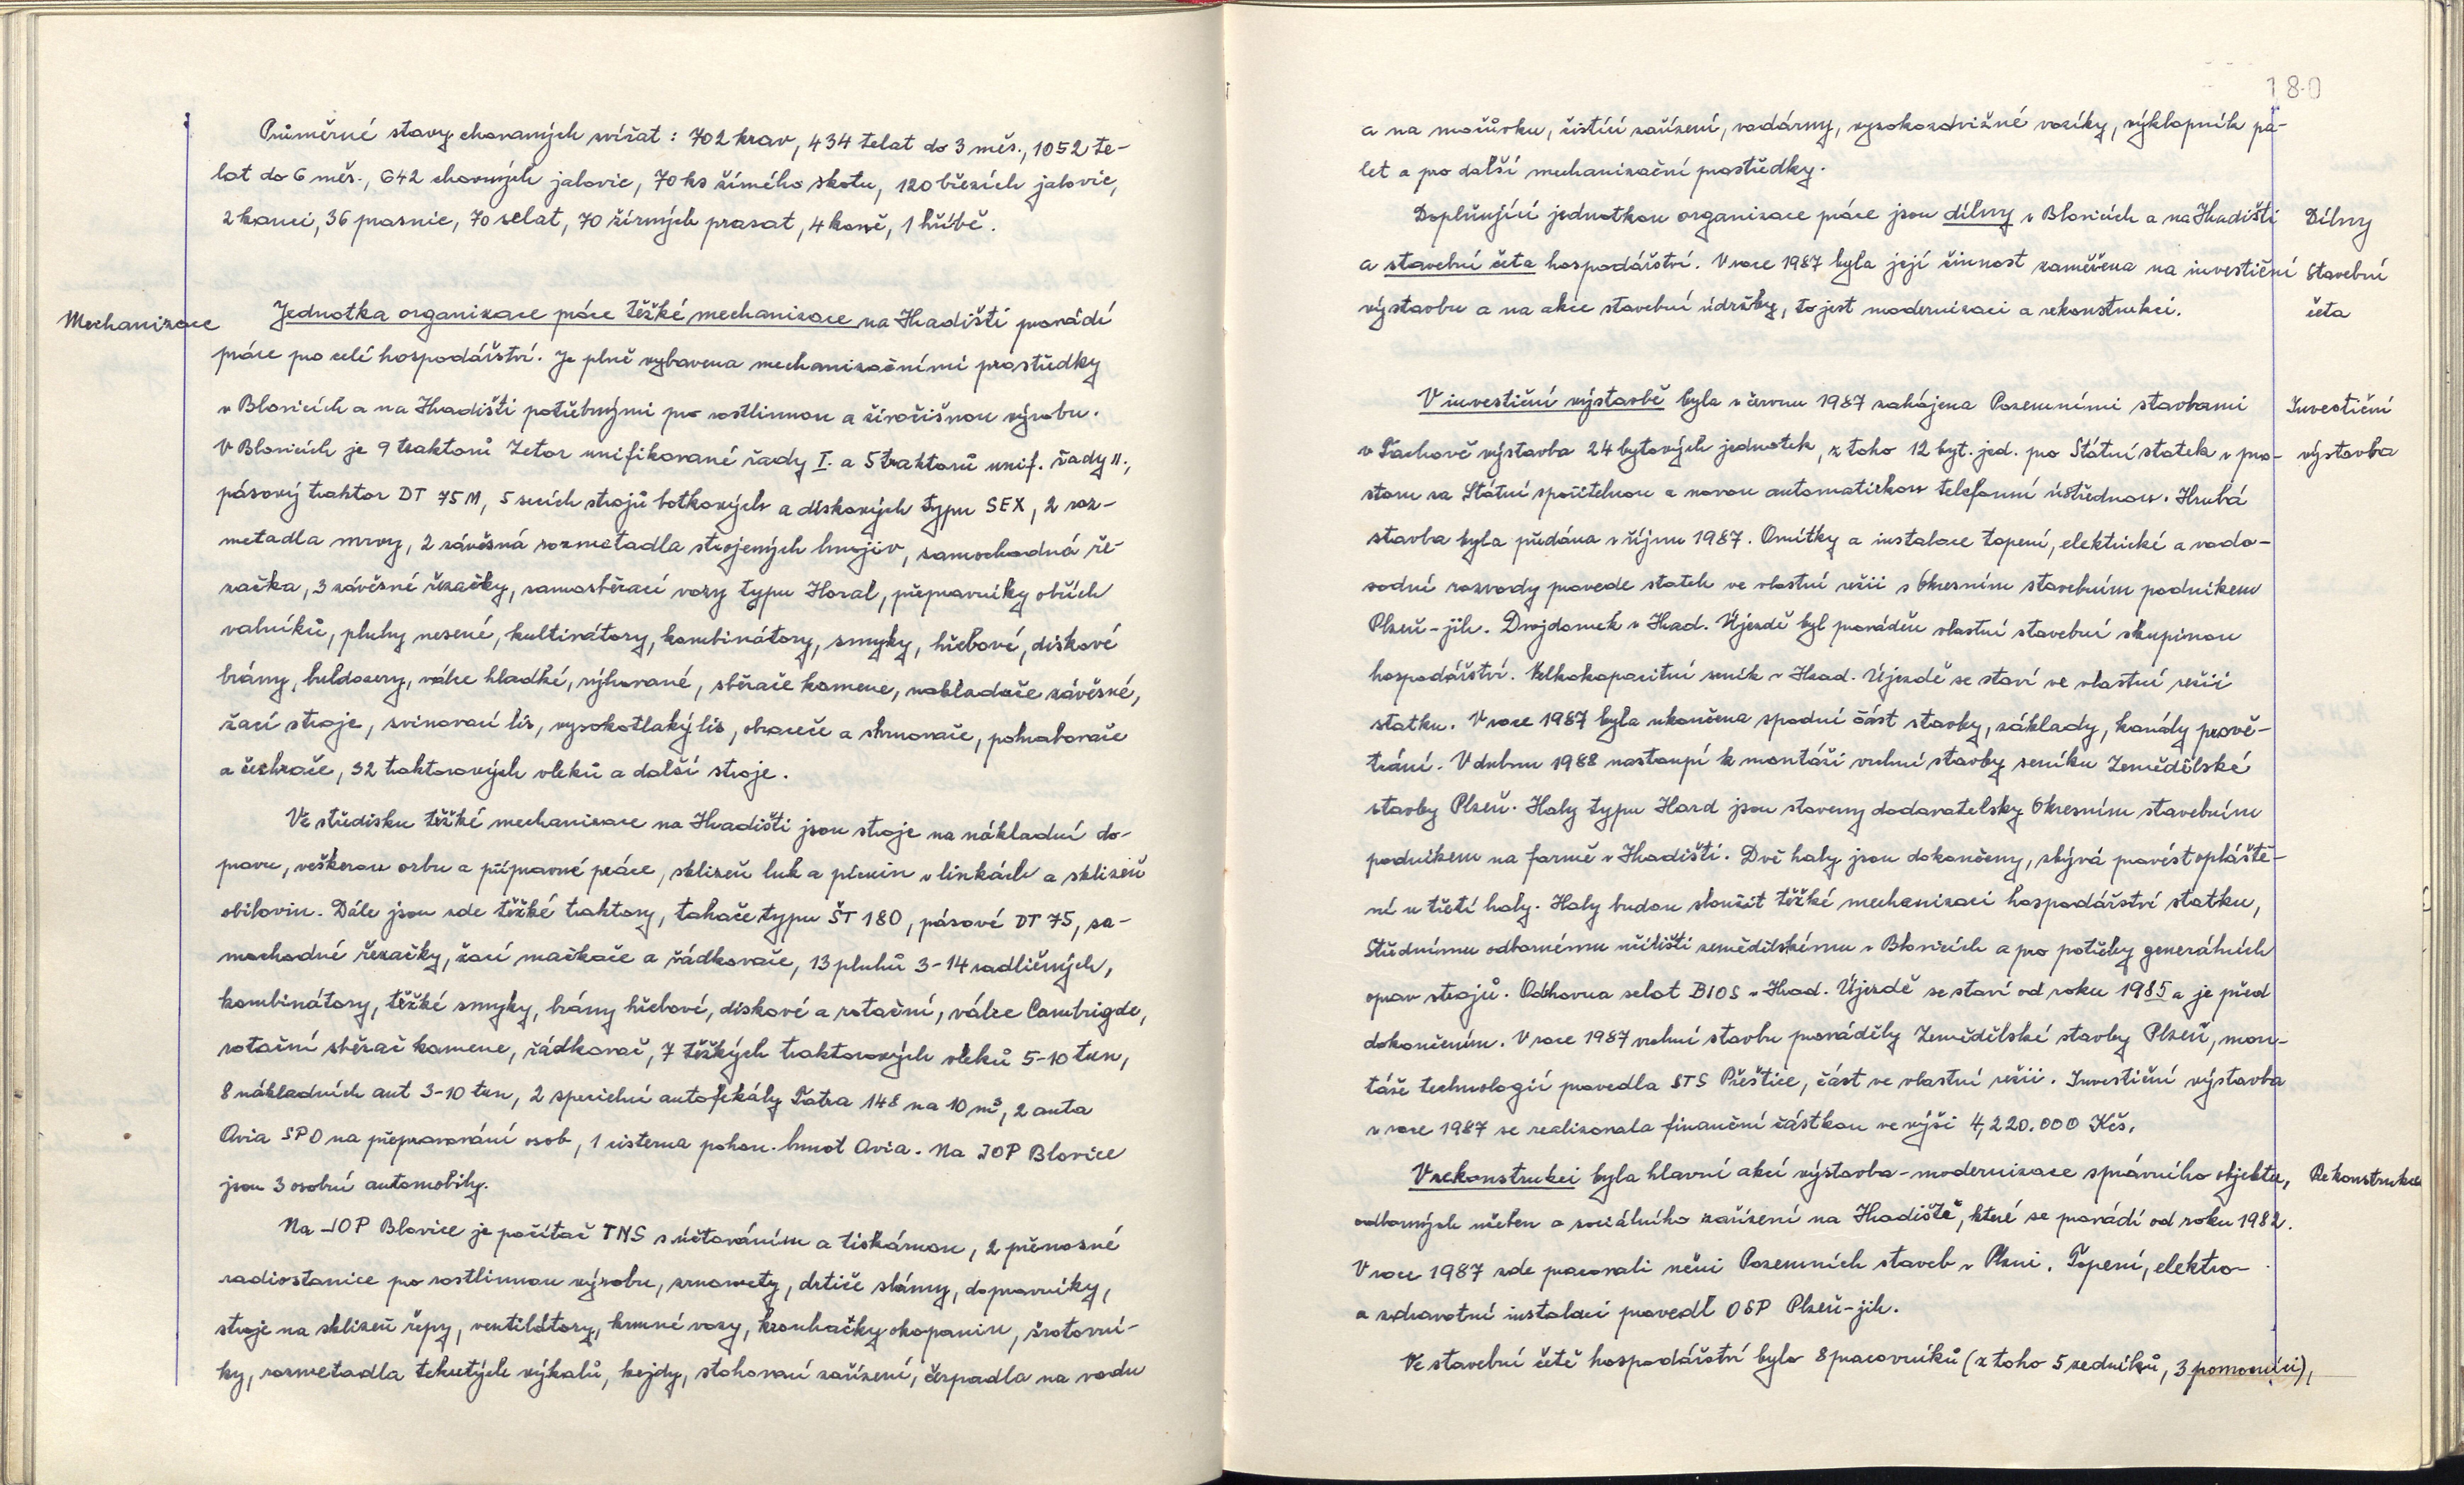 Průměrné stavy chovaných zvířat: 702 krav, 434 telat do 3 měs., 1052 te-
lat do 6 měs., 642 chovných jalovic, 70 ks žírného skotu, 120 březích jalovic,
2 kanci, 36 prasnic, 70 selat, 70 žírných prasat, 4 koně, 1 hříbě.
Mechanizace
Jednotka organizace práce těžké mechanizace na Hradišti provádí
práce pro celé hospodářství. Je plně vybavena mechanizačními prostředky
v Blovicích a na Hradišti potřebnými pro rostlinnou a živočišnou výrobu.
V Blovicích je 9 traktorů Zetor unifikované řady I. a 5 traktorů unif. řady II.,
pásový traktor DT 75 M, 5 secích strojů botkových a diskových typu SEX, 2 roz-
metadla mrvy, 2 závěsná rozmetadla strojených hnojiv, samochodná ře-
začka, 3 závěsné řezačky, samosběrací vozy typu Horal, přepravníky obřích
valníků, pluhy nesené, kultivátory, kombinátory, smyky, hřebové, diskové
brány, buldozery, válce hladké, rýhované, sběrače kamene, nakladače závěsné,
žací stroje, svinovací lis, vysokotlaký lis, obraceče a shrnovače, pohrabovače
a čechrače, 32 traktorových vleků a další stroje.
Ve středisku těžké mechanizace na Hradišti jsou stroje na nákladní do-
pravu, veškerou orbu a přípravné práce, sklizeň luk a pícnin v linkách a sklizeň
obilovin. Dále jsou zde těžké traktory, tahače typu ŠT 180, pásové DT 75, sa-
mochodné řezačky, žací mačkače a řádkovače, 13 pluhů 3-14 radličných,
kombinátory, těžké smyky, brány hřebové, diskové a rotační, válce Cambrigde,
rotační sběrač kamene, řádkovač, 7 těžkých traktorových vleků 5-10 tun,
8 nákladních aut 3-10 tun, 2 specielní autofekály Tatra 148 na 10 m³, 2 auta
Avia SPO na přepravování osob, 1 cisterna pohon. hmot Avia. Na JOP Blovice
jsou 3 osobní automobily.
Na JOP Blovice je počítač TNS s účtováním a tiskárnou, 2 přenosné
radiostanice pro rostlinnou výrobu, zrnomety, drtiče slámy, dopravníky,
stroje na sklizeň řepy, ventilátory, krmné vozy, krouhačky okopanin, šrotovní-
ky, rozmetadla tekutých výkalů, kejdy, stohovací zařízení, čerpadla na vodu
180
a na močůvku, čistící zařízení, vodárny, vysokozdvižné vozíky, výklopník pa-
let a pro další mechanizační prostředky.
Doplňující jednotkou organizace práce jsou dílny v Blovicích a na Hradišti
Dílny
a stavební četa hospodářství. V roce 1987 byla její činnost zaměřena na investiční
Stavební
výstavbu a na akce stavební údržby, to jest modernizaci a rekonstrukci.
četa
V investiční výstavbě byla v červnu 1987 zahájena Pozemními stavbami
Investiční
v Tachově výstavba 24 bytových jednotek, z toho 12 byt. jed. pro Státní statek v pro-
výstavba
storu za Státní spořitelnou a novou automatickou telefonní ústřednou. Hrubá
stavba byla předána v říjnu 1987. Omítky a instalace topení, elektrické a vodo-
vodní rozvody provede statek ve vlastní režii s Okresním stavebním podnikem
Plzeň-jih. Dvojdomek v Hrad. Újezdě byl prováděn vlastní stavební skupinou
hospodářství. Velkokapacitní seník v Hrad. Újezdě se staví ve vlastní režii
statku. V roce 1987 byla ukončena spodní část stavby, základy, kanály prově-
trání. V dubnu 1988 nastoupí k montáži vrchní stavby seníku Zemědělské
stavby Plzeň. Haly typu Hard jsou staveny dodavatelsky Okresním stavebním
podnikem na farmě v Hradišti. Dvě haly jsou dokončeny, zbývá provést opláště-
ní u třetí haly. Haly budou sloužit těžké mechanizaci hospodářství statku,
Střednímu odbornému učilišti zemědělskému v Blovicích a pro potřeby generálních
oprav strojů. Odchovna selat BIOS v Hrad. Újezdě se staví od roku 1985 a je před
dokončením. V roce 1987 vrchní stavbu prováděly Zemědělské stavby Plzeň, mon-
táže technologií provedla STS Přeštice, část ve vlastní režii. Investiční výstavba
v roce 1987 se realizovala finanční částkou ve výši 4,220.000 Kčs.
V rekonstrukci byla hlavní akcí výstavba - modernizace správního objektu,
Rekonstrukce
odborných učeben a sociálního zařízení na Hradiště, které se provádí od roku 1982.
V roce 1987 zde pracovali učni Pozemních staveb v Plzni. Topení, elektro-
a zdravotní instalaci provedl OSP Plzeň-jih.
Ve stavební četě hospodářství bylo 8 pracovníků (z toho 5 zedníků, 3 pomocníci),